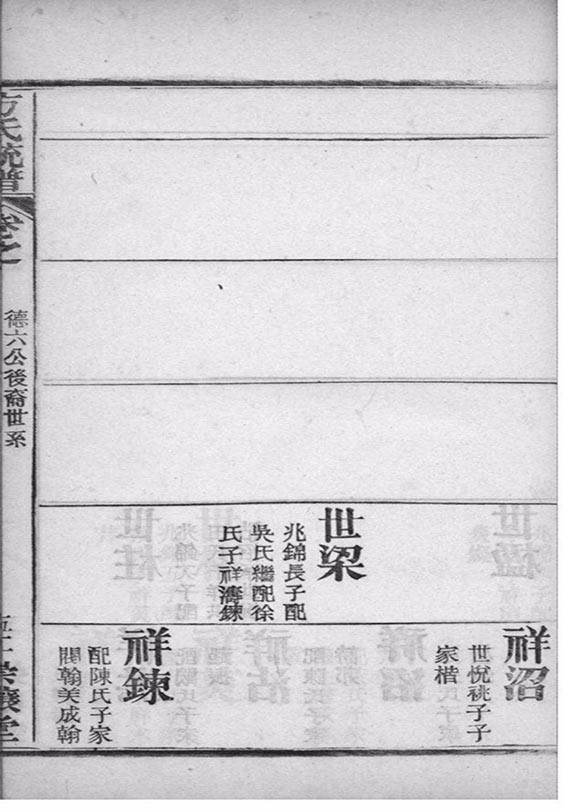 世梁
兆錦長子配
吳氏繼配徐
氏子祥濤鍊
祥沼
世悅祧子子
家楷
祥鍊
配陳氏子家
閥翰美成翰
方氏統譜
卷之
德六公後裔世系